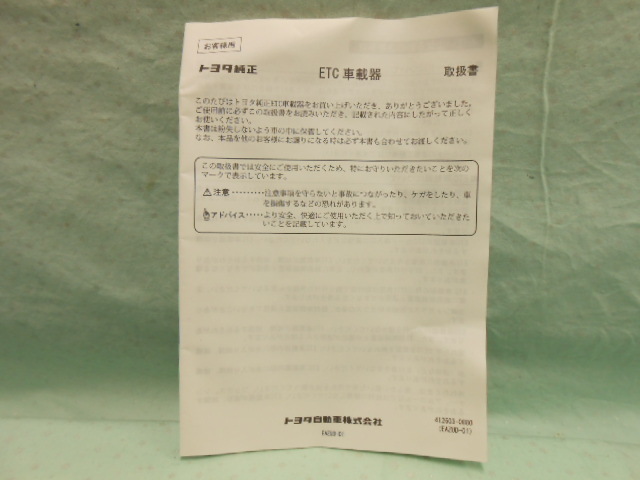 お客様用
トヨタ純正 ETC車載器 取扱書
このたびはトヨタ純正ETC車載器をお買い上げいただき、ありがとうございました。
ご使用前に必ずこの取扱書をお読みいただき、記載された内容にしたがって正しく
お使いください。
本書は紛失しないよう車の中に保管してください。
なお、本品を他のお客様にお譲りになる時は必ず本書も合わせてお渡しください。
この取扱書では安全にご使用いただくため、特にお守りいただきたいことを次の
マークで表示しています。
⚠注意 ‥‥‥‥‥注意事項を守らないと事故につながったり、ケガをしたり、車
を損傷するなどの恐れがあります。
アドバイス‥‥‥より安全、快適にご使用いただく上で知っておいていただきた
いことを記載しています。
トヨタ自動車株式会社